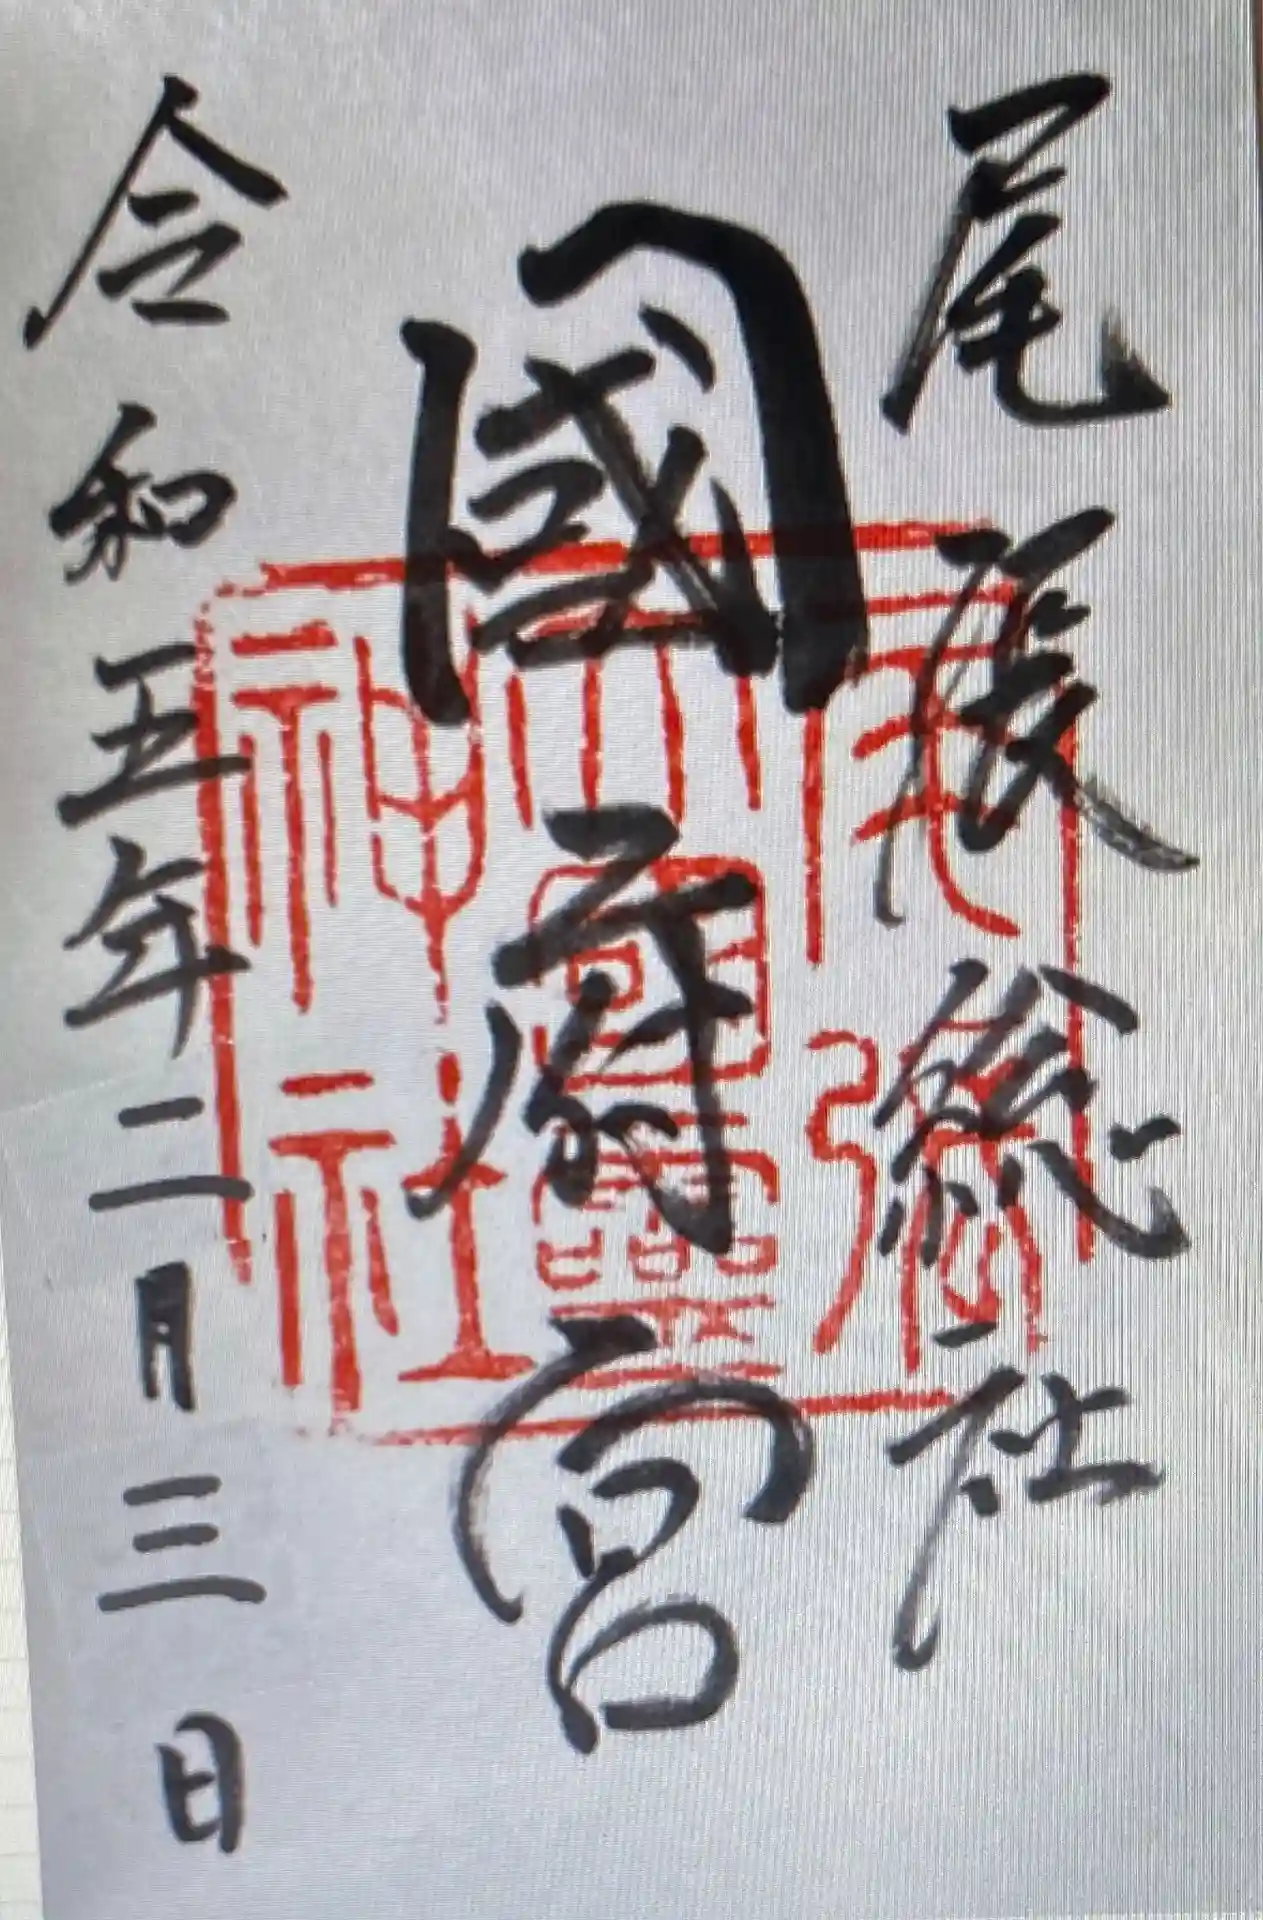 尾張総社
國府宮
令和五年二月三日
尾張
大國靈
神社